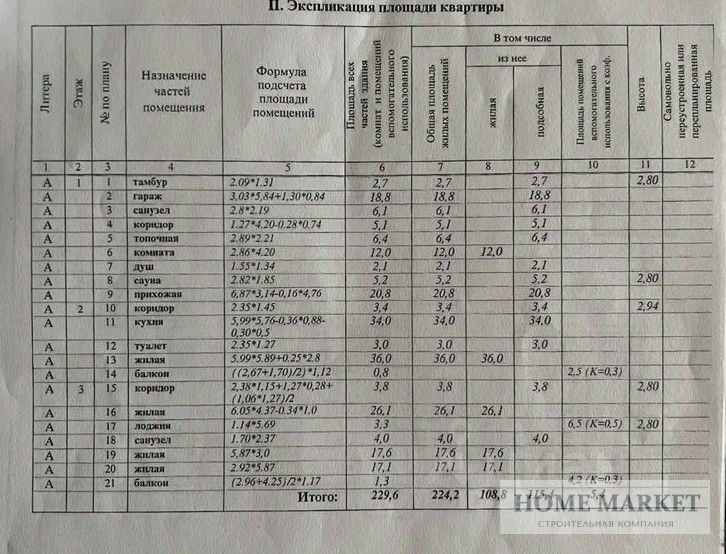 II. Экспликация площади квартиры
Литера | Этаж | № по плану | Назначение частей помещения | Формула подсчета площади помещений | Площадь всех частей здания (комнат и помещений вспомогательного использования) | В том числе | Высота | Самовольно переустроенная или перепланированная площадь
Общая площадь жилых помещений | из нее | Площадь помещений вспомогательного использования с коэф.
жилая | подсобная
1 | 2 | 3 | 4 | 5 | 6 | 7 | 8 | 9 | 10 | 11 | 12
А | 1 | 1 | тамбур | 2.09*1.31 | 2,7 | 2,7 | 2,7 | 2,80
А | 2 | гараж | 3.03*5,84+1,30*0,84 | 18,8 | 18,8 | 18,8
А | 3 | санузел | 2.8*2.19 | 6,1 | 6,1 | 6,1
А | 4 | коридор | 1.27*4.20-0.28*0.74 | 5,1 | 5,1 | 5,1
А | 5 | топочная | 2.89*2.21 | 6,4 | 6,4 | 6,4
А | 6 | комната | 2.86*4.20 | 12,0 | 12,0 | 12,0
А | 7 | душ | 1.55*1.34 | 2,1 | 2,1 | 2,1
А | 8 | сауна | 2.82*1.85 | 5,2 | 5,2 | 5,2 | 2,80
А | 9 | прихожая | 6,87*3,14-0,16*4,76 | 20,8 | 20,8 | 20,8
А | 2 | 10 | коридор | 2.35*1.45 | 3,4 | 3,4 | 3,4 | 2,94
А | 11 | кухня | 5,99*5,76-0,36*0,88-
0,30*0,5 | 34,0 | 34,0 | 34,0
А | 12 | туалет | 2.35*1.27 | 3,0 | 3,0 | 3,0
А | 13 | жилая | 5.99*5.89+0.25*2.8 | 36,0 | 36,0 | 36,0
А | 14 | балкон | ((2,67+1,70)/2)*1,12 | 0,8 | 2,5 (K=0,3)
А | 3 | 15 | коридор | 2,38*1,15+1,27*0,28+
(1,06*1,27)/2 | 3,8 | 3,8 | 3,8 | 2,80
А | 16 | жилая | 6.05*4.37-0.34*1.0 | 26,1 | 26,1 | 26,1
А | 17 | лоджия | 1.14*5.69 | 3,3 | 6,5 (K=0,5) | 2,80
А | 18 | санузел | 1.70*2.37 | 4,0 | 4,0 | 4,0
А | 19 | жилая | 5,87*3,0 | 17,6 | 17,6 | 17,6
А | 20 | жилая | 2.92*5.87 | 17,1 | 17,1 | 17,1
А | 21 | балкон | (2.96+4.25)/2*1.17 | 1,3 | 4,2 (K=0,3)
Итого: | 229,6 | 224,2 | 108,8 | 115,4 | 5,4
HOME MARKET
СТРОИТЕЛЬНАЯ КОМПАНИЯ